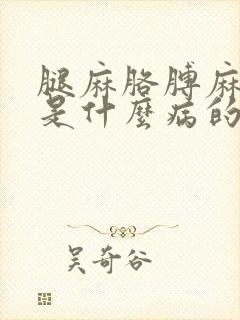 腿麻胳膊麻
是什麼病的
吴奇谷